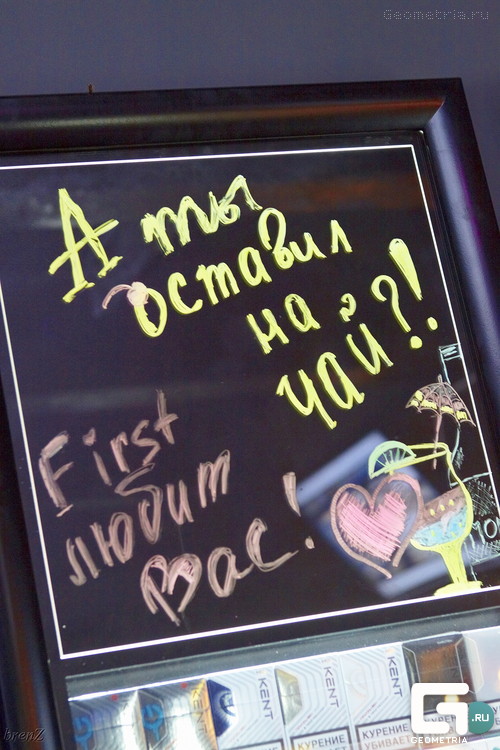 Geometria.ru
А ты
оставил
на
чай?!
First
любит
вас!
KENT
KENT
KENT
КУРЕНИЕ
КУРЕНИЕ
G .RU
GEOMETRIA
brenZ